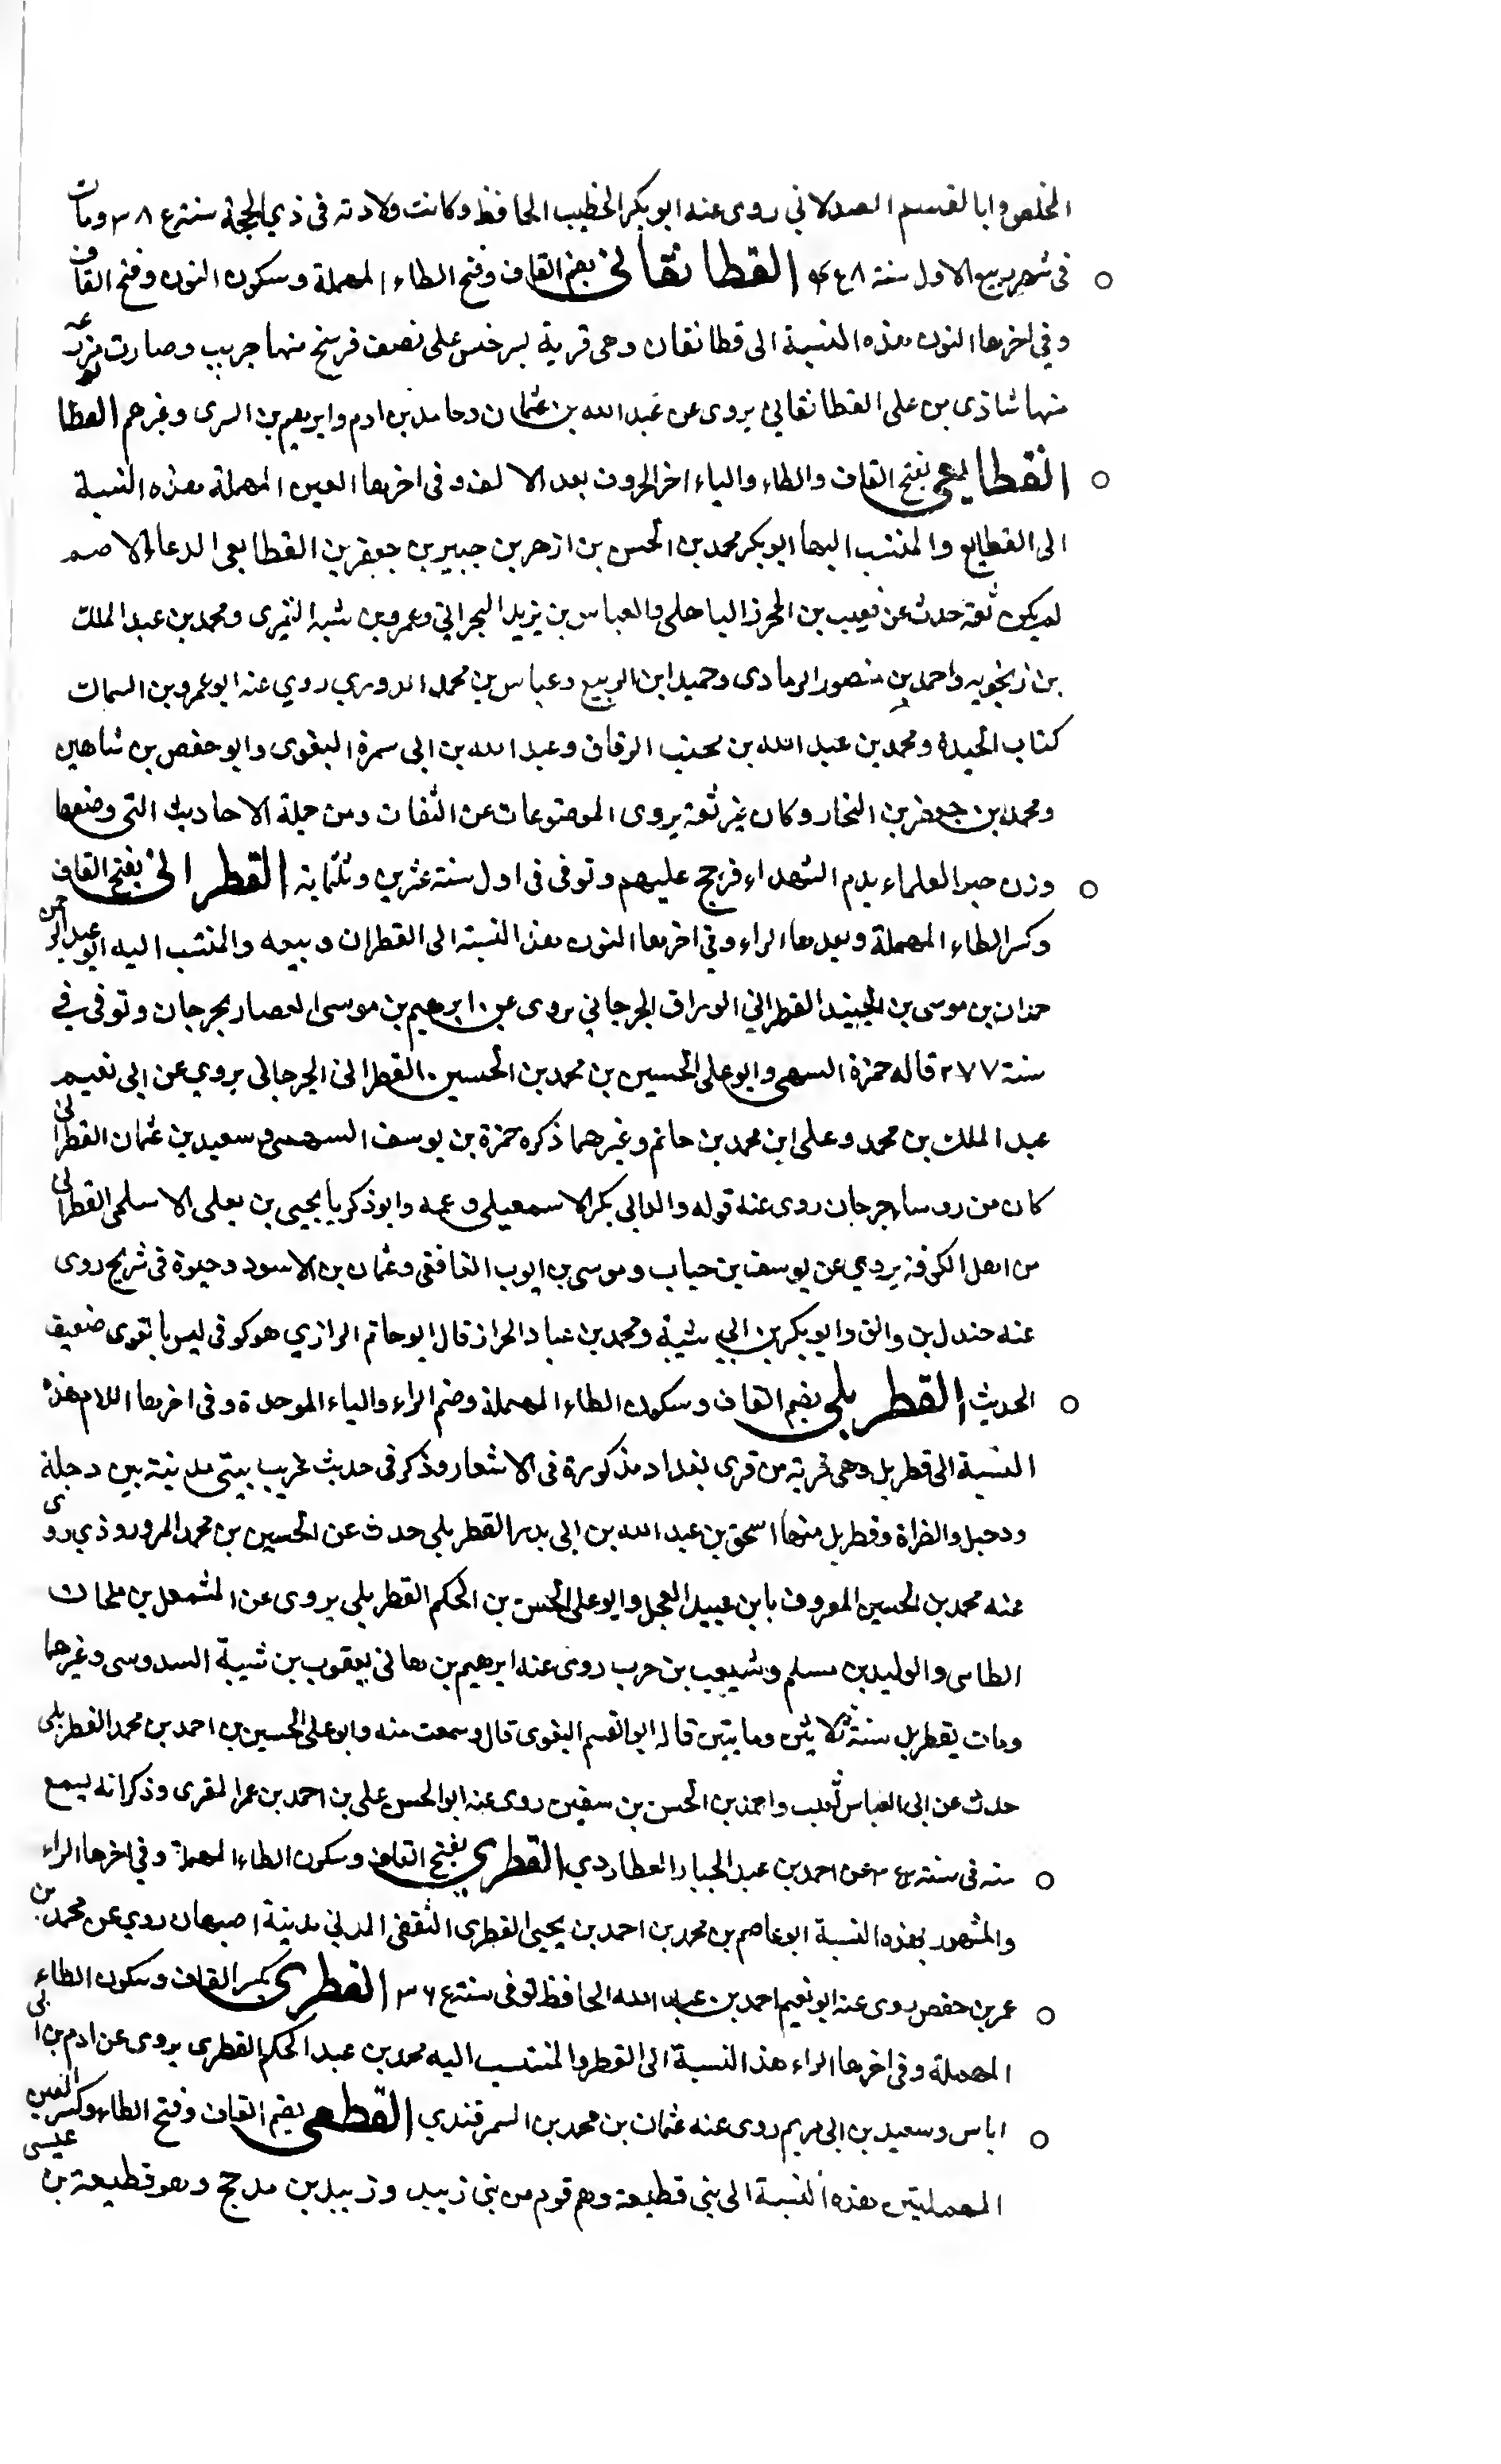 المخلص وابا القسم الصدلاني روى عنه ابو بكر الخطيب الحافظ وكانت ولادته فى ذي الحجة سنة ٣٨٤ ومات
فى شهر ربيع الاول سنة ٤٦٨ القطانقاني بضم القاف وفتح الطاء المهملة وسكون النون وفتح القاف
وفي اخرها النون هذه النسبة الى قطانقان وهى قرية بسرخس على نصف فرسخ منها جريب وصارت مزرعه
منها شاذى بن على القطانقاني يروى عن عبد الله بن عثمان وحامد بن ادم وابرهيم بن السرى وغيرهم القطا
القطايعي بفتح القاف والطاء والياء اخر الحروف بعد الالف وفى اخرها العين المهملة هذه النسبة
الى القطايع والمنتسب اليها ابو بكر محمد بن الحسن بن ازهر بن جبير بن جعفر بن القطايعى الدعاء الاصم
لم يكن ثقة حدث عن قعيب بن المحرز الباهلى والعباس بن يزيد البحراني وعمرو بن شبه النميرى ومحمد بن عبد الملك
بن زنجويه واحمد بن منصور الرمادى وحميد ابن الربيع وعباس بن محمد الدوري روي عنه ابو عمرو بن السماك
كتاب الحيدة ومحمد بن عبد الله بن بخيت الدقاق وعبد الله بن ابى سمرة البغوى وابو حفص بن شاهين
ومحمد بن جعفر بن النجار وكان غير ثقة يروى الموضوعات عن الثقات ومن جملة الاحاديث التى وضعها
وزن حبر العلماء بدم الشهداء فرجح عليهم وتوفى فى اول سنة عشرين وثلثماية القطراني بفتح القاف
وكسر الطاء المهملة وبعدها الراء وفي اخرها النون هذه النسبة الى القطران وبيعه والمنتسب اليه ابو عبد الرحمن
حمدان بن موسى بن الجنيد القطراني الوراق الجرجاني يروى عن ابرهيم بن موسى العصار بجرجان وتوفى في
سنة ٢٧٧ قاله حمزة السهمى وابو على الحسين بن محمد بن الحسين القطرانى الجرجانى يروي عن ابى نعيم
عبد الملك بن محمد وعلى ابن محمد بن حاتم وغيرهما ذكره حمزة بن يوسف السهمى وسعيد بن عثمان القطرانى
كان من روساء جرجان روى عنه قوله والد ابى بكر الاسمعيلى وعمه وابو زكريا يحيى بن يعلى الاسلمى القطرانى
من اهل الكوفة يروي عن يوسف بن خباب وموسى بن ايوب الغافقى وعثمان بن الاسود وحيوة فى شريح روى
عنه جندل بن والق وابو بكر بن ابى شيبة ومحمد بن عباد الخراز قال ابو حاتم الرازي هو كوفى ليس بالقوى ضعيف
الحديث القطربلى بضم القاف وسكون الطاء المهملة وضم الراء والباء الموحدة وفى اخرها اللام هذه
النسبة الى قطربل وهى قرية من قرى بغداد مذكورة فى الاشعار وذكر فى حديث غريب يبنى مدينة بين دجلة
ودجيل والصراة وقطربل منها اسحق بن عبد الله بن ابى بدر القطربلى حدث عن الحسين بن محمد المروروذي روى
عنه محمد بن الحسين المعروف بابن عبيد العجل وابو على الحسن بن الحكم القطربلى يروى عن المشمعل بن ملحان
الطاى والوليد بن مسلم وشعيب بن حرب روى عنه ابرهيم بن هانى يعقوب بن شيبة السدوسى وغيرهما
ومات بقطربل سنة ثلاثين ومايتين قاله ابو القسم البغوى قال وسمعت منه وابو على الحسين بن احمد بن محمد القطربلى
حدث عن ابى العباس ثعلب واحمد بن الحسن بن سفين روى عنه ابو الحسن على بن احمد بن عمر المقرى وذكر انه يسمع
منه فى سنة عن احمد بن عبد الجبار العطاردي القطري بفتح القاف وسكون الطاء المهملة وفي اخرها الراء
والمشهور بهذه النسبة ابو عاصم بن محمد بن احمد بن يحيى القطرى الثقفى المدني مدينة اصبهان روي عن محمد بن
عمر بن حفص روى عنه ابو نعيم احمد بن عبد الله الحافظ توفى سنة ٣٦٤ القطري بكسر القاف وسكون الطاء
المهملة وفى اخرها الراء هذه النسبة الى القطر والمنتسب اليه محمد بن عبد الحكم القطرى يروى عن ادم بن ابى
اياس وسعيد بن ابى مريم روى عنه عثمان بن محمد بن السمرقندي القطعى بضم القاف وفتح الطاء وكسر العين
المهملتين هذه النسبة الى بني قطيعة وهم قوم من بني زبيد وزبيد بن مدحج وهو قطيعة بن عيسى